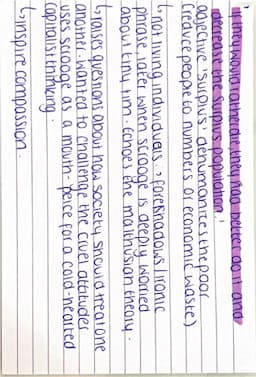 'if they would rather die, they had better do it and
decrease the surplus population.'
adjective 'surplus' dehumanizes the poor
(reduce people to numbers or economic waste)
↳ not living individuals. → foreshadows / ironic
phrase later when scrooge is deeply worried
about tiny tim. echoes the malthusian theory.
↳ raises questions about how society should treat one
another. wanted to challenge the cruel attitudes
uses scrooge as a mouth-peice for a cold-hearted
capitalist thinking.
↳ inspire compassion.